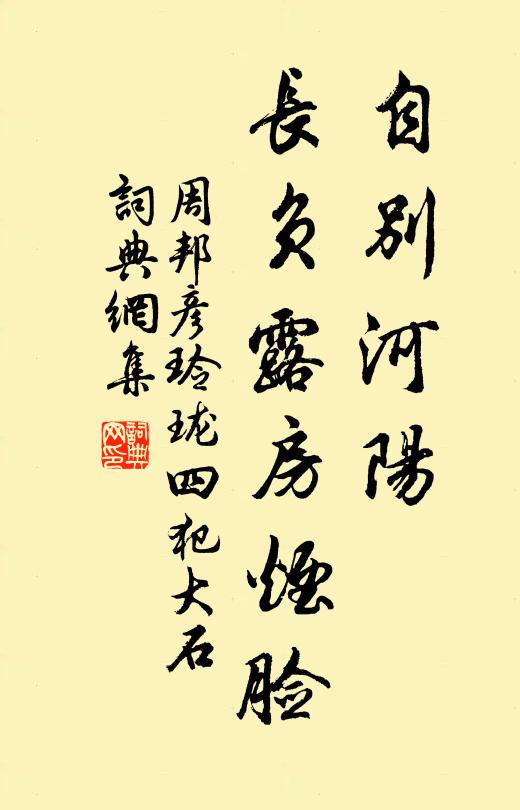 自别河陽
長負露房煙脸
周邦彦玲珑四犯大石
詞典網集
詞典網印